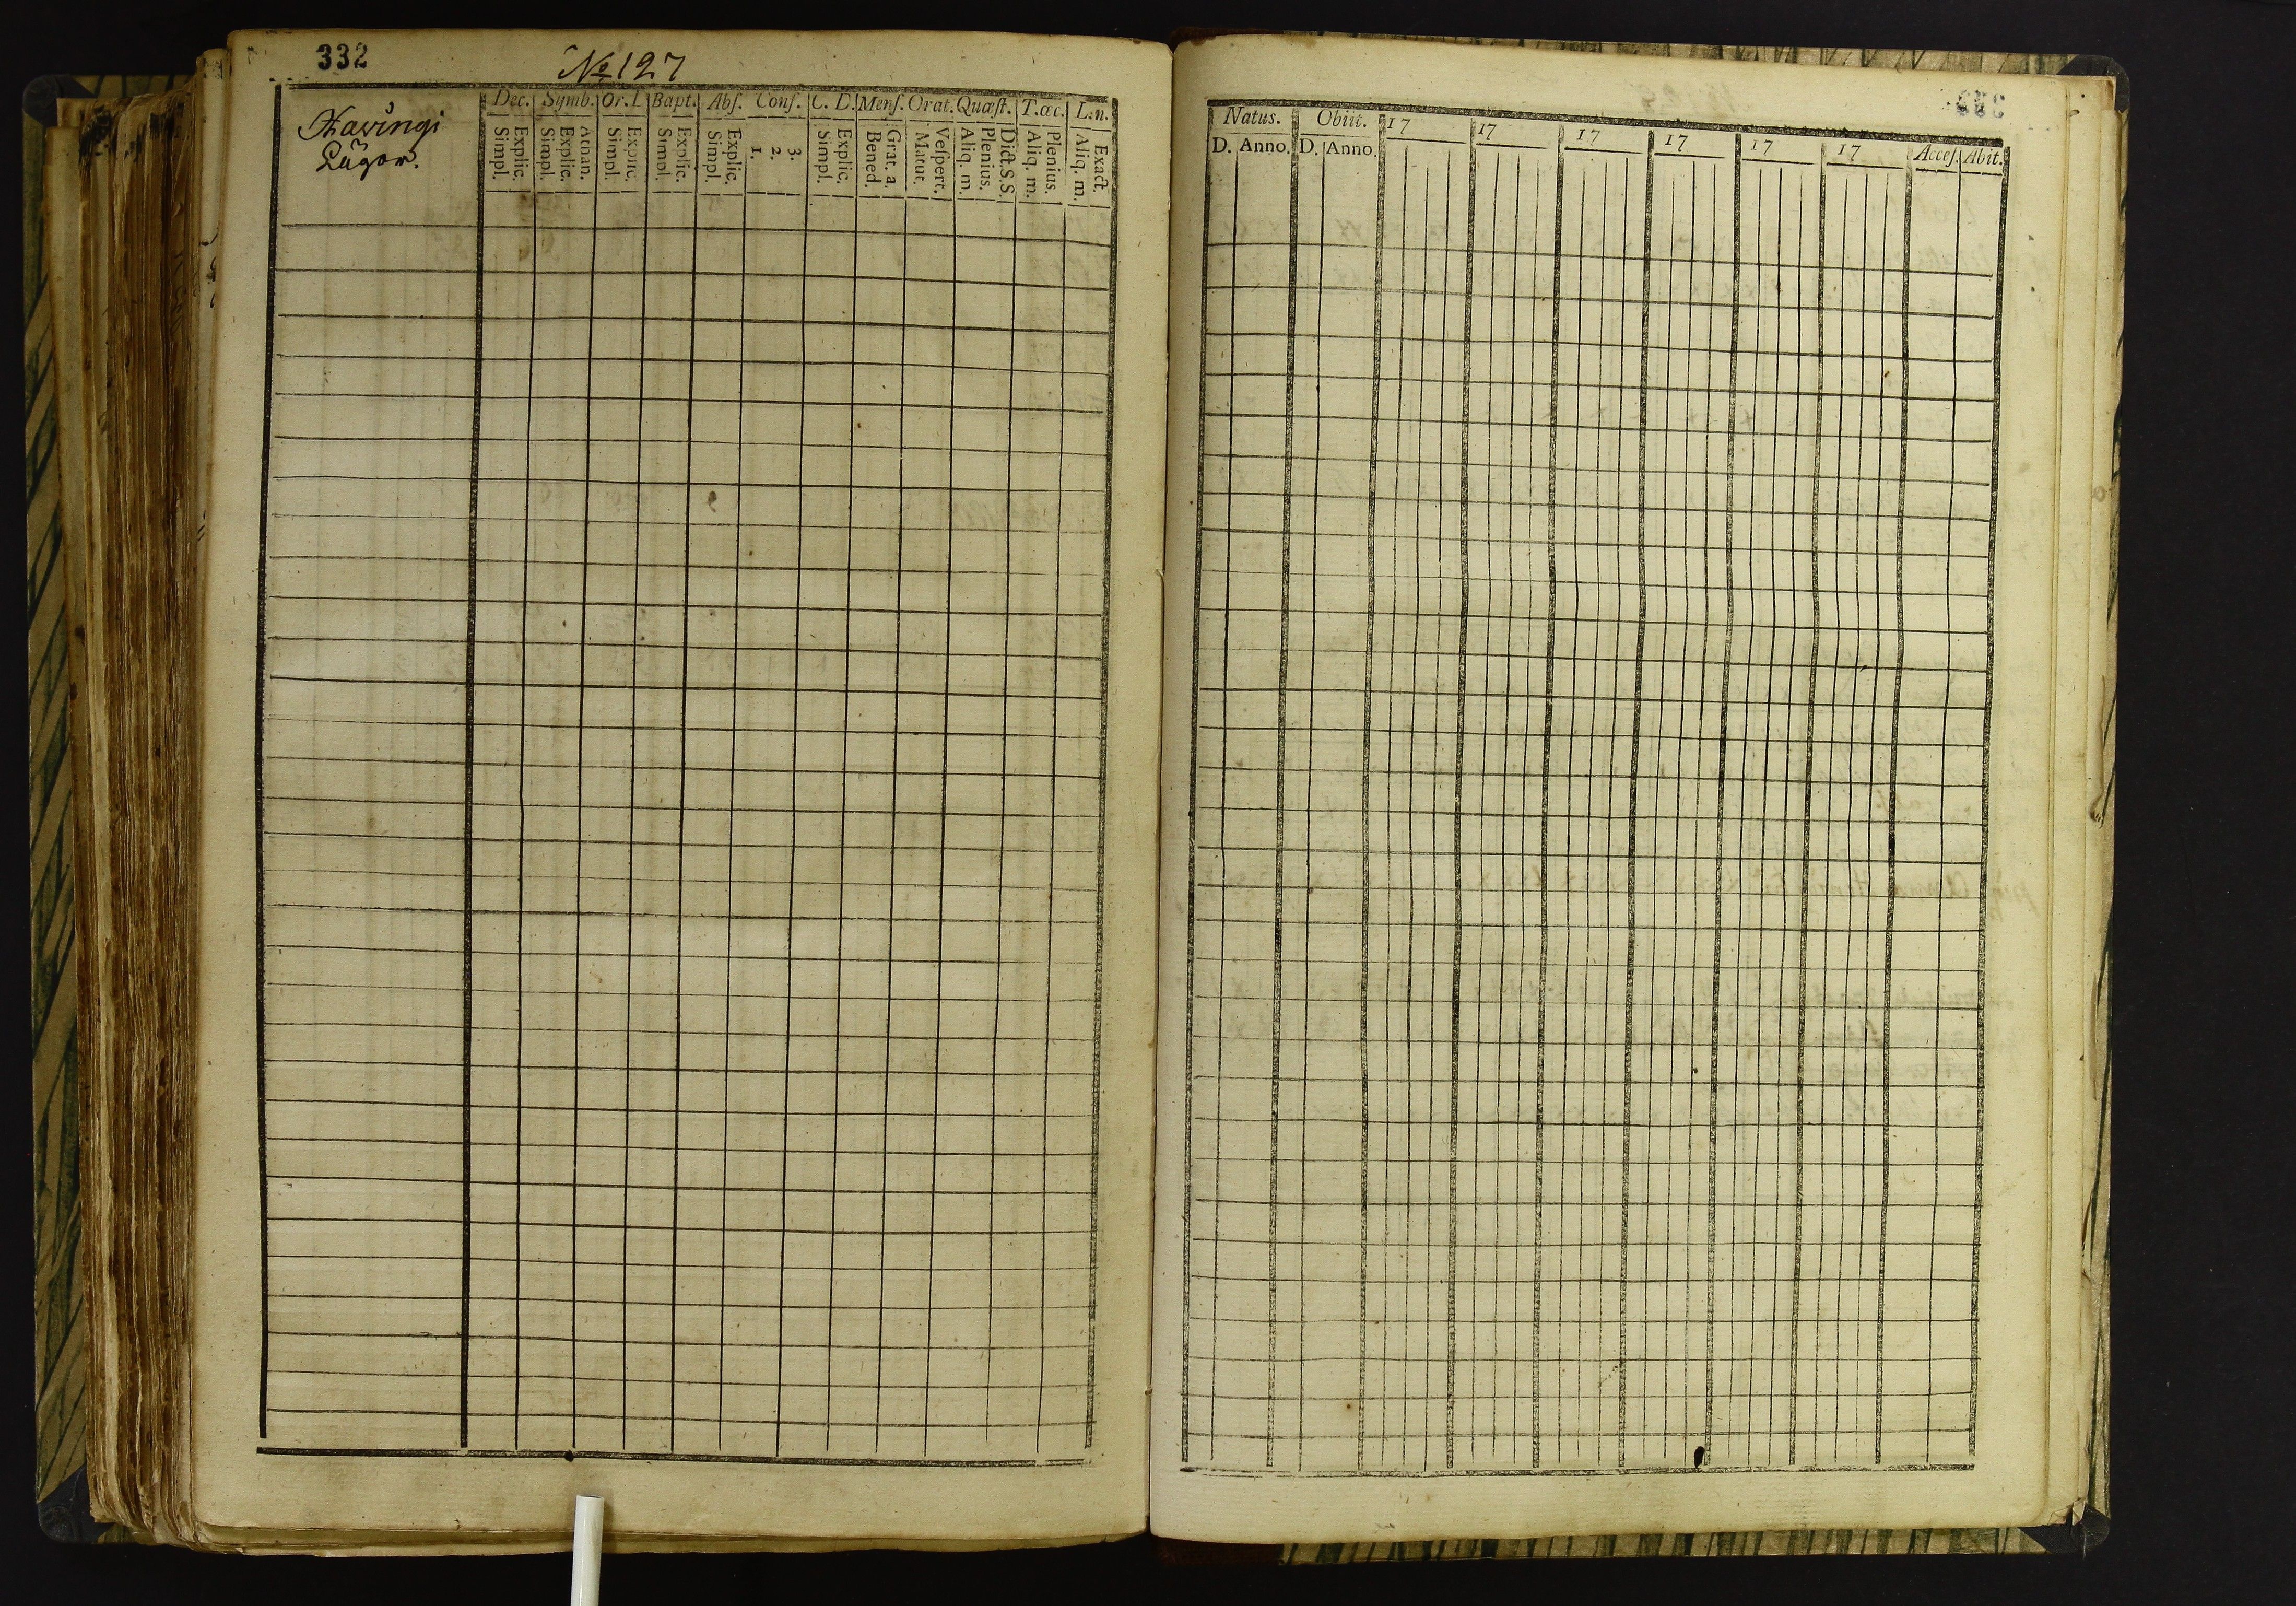 332
No 127
Havingi
Lägor.
Dec. Symb. Or. L. Bapt. Abſ. Conf. C. D. Menſ. Orat. Quæſt. T. œc. L. n.
Simpl. Explic. Simpl. Explic. Athan. Simpl. Explic. Simpl. Explic. Simpl. Explic. 1. 2. 3. Simpl. Explic. Bened. Grat. a. Matut. Veſpert. Aliq. m. Plenius. Dict.S.S. Aliq. m. Plenius. Aliq. m. Exact.
Natus. Obiit. 17 17 17 17 17 17 Acceſ. Abit.
D. Anno. D. Anno.